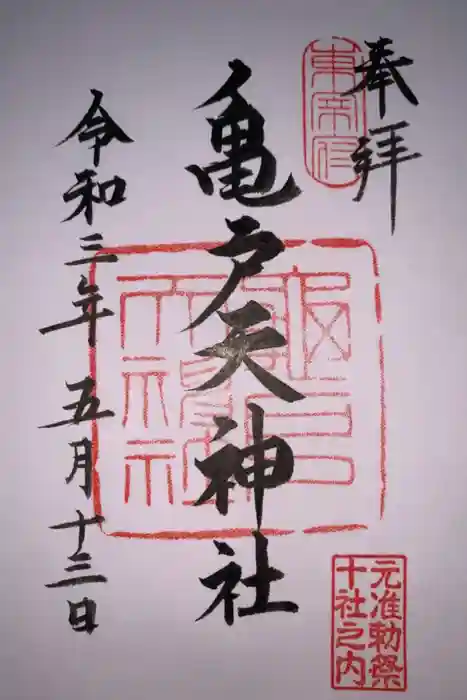 奉拝
亀戸天神社
令和三年五月十三日
元准勅祭
十社之内